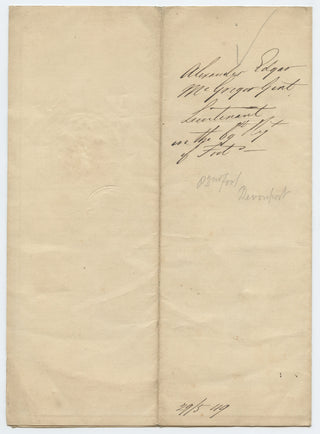 Alexander Edgar
McGregor
Lieutenant
in the 69th Regt
of Foot
Devonport
29/5 49